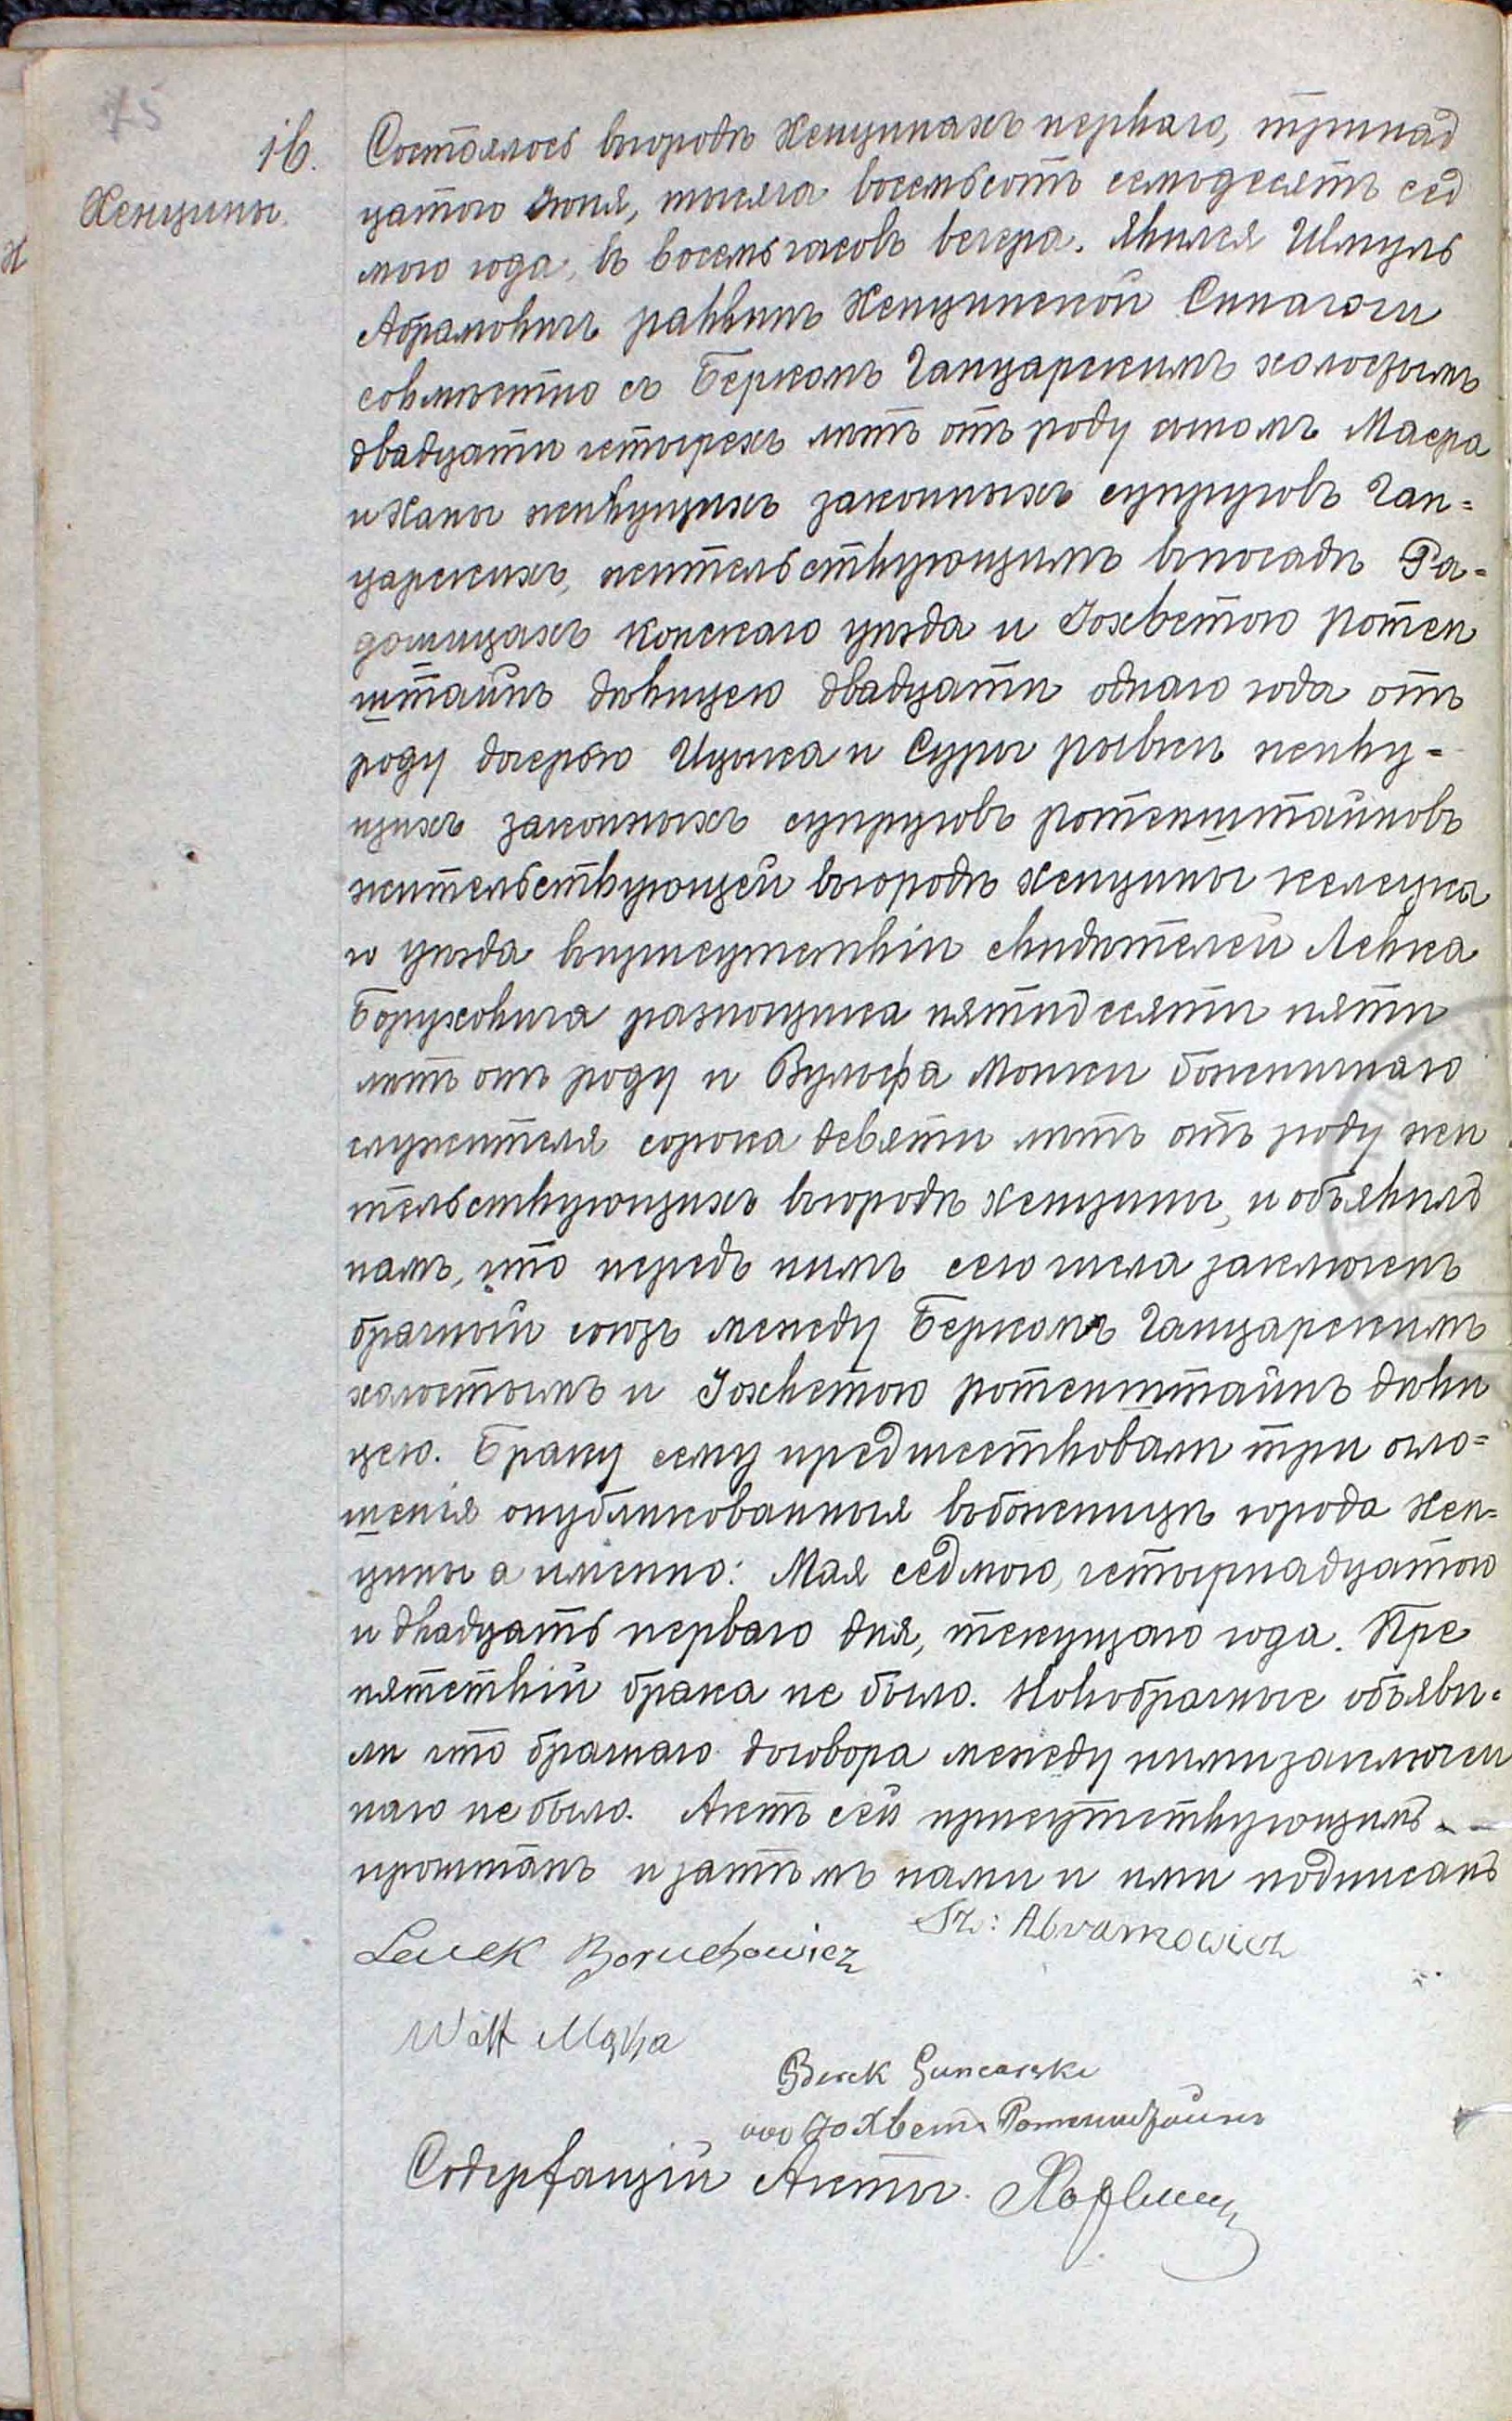 75
16.
Хенцины.
Состоялось вгородѣ Хенцинахъ перваго, тринад
цатого Іюня, тысяча восемьсотъ семодесятъ сед
мого года, въ восемь часовъ вечера. Явился Шмуль
Абрамовичъ раввинъ Хенцинской Синагоги
совмѣстно съ Беркомъ Ганцарскимъ холостымъ
двадцати четырехъ лѣтъ отъ роду сыномъ Маера
и Ханы живущихъ законныхъ супруговъ Ган=
царскихъ, жительствующимъ впосадѣ Ра=
дошицахъ Конскаго уѣзда и Іохветою Ротен
штайнъ дѣвицею двадцати однаго года отъ
роду дочерью Ицыка и Суры рывки живу=
щихъ законныхъ супруговъ Ротенштайновъ
жительствующей вгородѣ Хенцины Келецка
го уѣзда вприсутствіи свидѣтелей Левка
Боруховича разнощика пятидесяти пяти
лѣтъ отъ роду и Вульфа Мошки боженичнаго
служителя сорока девяти лѣтъ отъ роду жи
тельствующихъ вгородѣ Хенцины, и объявилъ
намъ, что передъ нимъ сего числа заключенъ
брачный союзъ между Беркомъ Ганцарскимъ
холостымъ и Іохветою Ротенштайнъ дѣви
цею. Браку сему предшествовали три огло=
шенія опубликованныя вбоженицѣ города Хен=
цины а именно: Мая седмого, четырнадцатого
и двадцать перваго дня, текущаго года. Пре
пятствій брака не было. Новобрачные объяви=
ли что брачнаго договора между ними заключен
наго не было. Актъ сей присутствующимъ
прочитанъ и затѣмъ нами и ими подписанъ
Sz: Abramowicz
Lewek Boruchowicz
Wolf Moszka
Berek Gancarski
ооо Іохветъ Ротенштайнъ
Содержащій Акты.